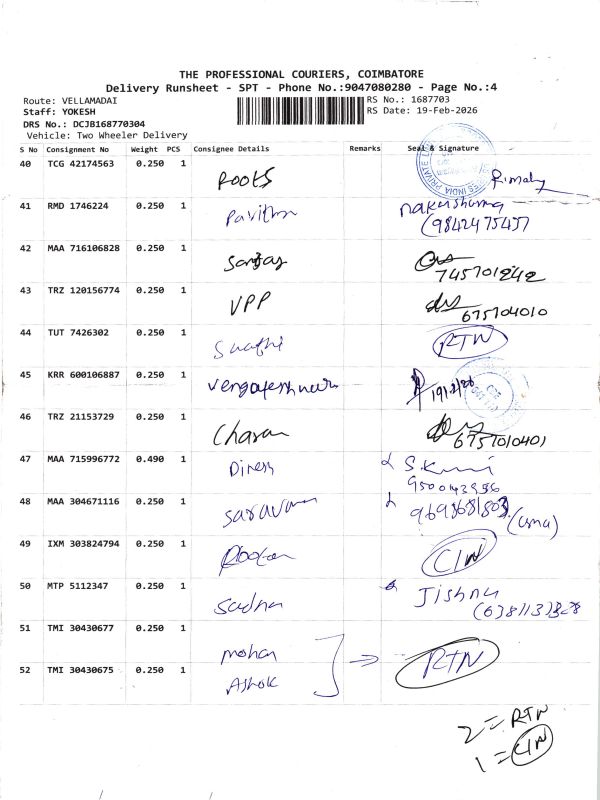 THE PROFESSIONAL COURIERS, COIMBATORE
Delivery Runsheet - SPT - Phone No.:9047080280 - Page No.:4
Route: VELLAMADAI RS No.: 1687703
Staff: YOKESH RS Date: 19-Feb-2026
DRS No.: DCJB168770304
Vehicle: Two Wheeler Delivery
S No Consignment No Weight PCS Consignee Details Remarks Seal & Signature
40 TCG 42174563 0.250 1 Roots
41 RMD 1746224 0.250 1 Pavithra
42 MAA 716106828 0.250 1 Sanjay
43 TRZ 120156774 0.250 1 VPP
44 TUT 7426302 0.250 1 Swathi RTN
45 KRR 600106887 0.250 1
46 TRZ 21153729 0.250 1 Charan 6757010401
47 MAA 715996772 0.490 1 Dinesh
48 MAA 304671116 0.250 1 Saravanan (uma)
49 IXM 303824794 0.250 1
50 MTP 5112347 0.250 1 Jishnu
51 TMI 30430677 0.250 1 Mohan RTN
52 TMI 30430675 0.250 1 Ashok
2 = RTN
1 =